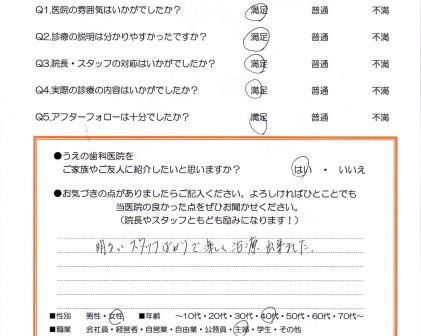 Q1.医院の雰囲気はいかがでしたか? 満足 普通 不満
Q2.診療の説明は分かりやすかったですか? 満足 普通 不満
Q3.院長・スタッフの対応はいかがでしたか? 満足 普通 不満
Q4.実際の診療の内容はいかがでしたか? 満足 普通 不満
Q5.アフターフォローは十分でしたか? 満足 普通 不満
●うえの歯科医院を
ご家族やご友人に紹介したいと思いますか? はい ・ いいえ
●お気づきの点がありましたらご記入ください。よろしければひとことでも
当医院の良かった点をぜひお聞かせください。
(院長やスタッフともども励みになります!)
明るいスタッフばかりで楽しく治療出来ました。
■性別 男性・女性 ■年齢 ~10代・20代・30代・40代・50代・60代・70代~
■職業 会社員・経営者・自営業・自由業・公務員・主婦・学生・その他